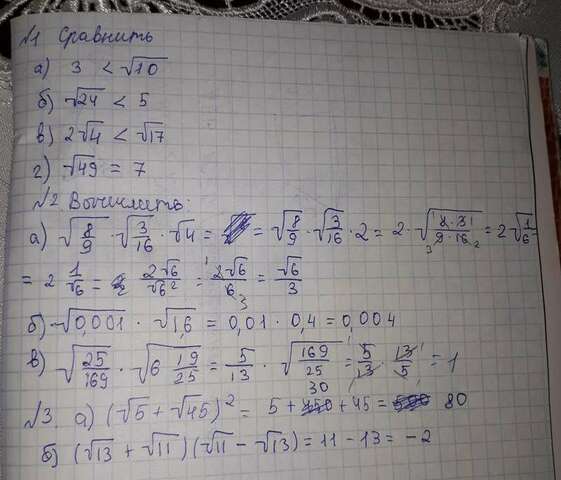 №1 Сравнить
а) 3 < √10
б) √24 < 5
в) 2√4 < √17
г) √49 = 7
№2 Вычислить:
а) √(8/9) · √(3/16) · √4 = = √(8/9) · √(3/16) · 2 = 2 · √((8·3)/(9·16)) = 2√(1/6) =
= 2 1/√6 = 2√6/√6² = 2√6/6 = √6/3
б) √0,001 · √1,6 = 0,01 · 0,4 = 0,004
в) √(25/169) · √(6 19/25) = 5/13 · √(169/25) = 5/13 · 13/5 = 1
№3. а) (√5 + √45)² = 5 + 30 + 45 = 80
б) (√13 + √11)(√11 − √13) = 11 − 13 = −2